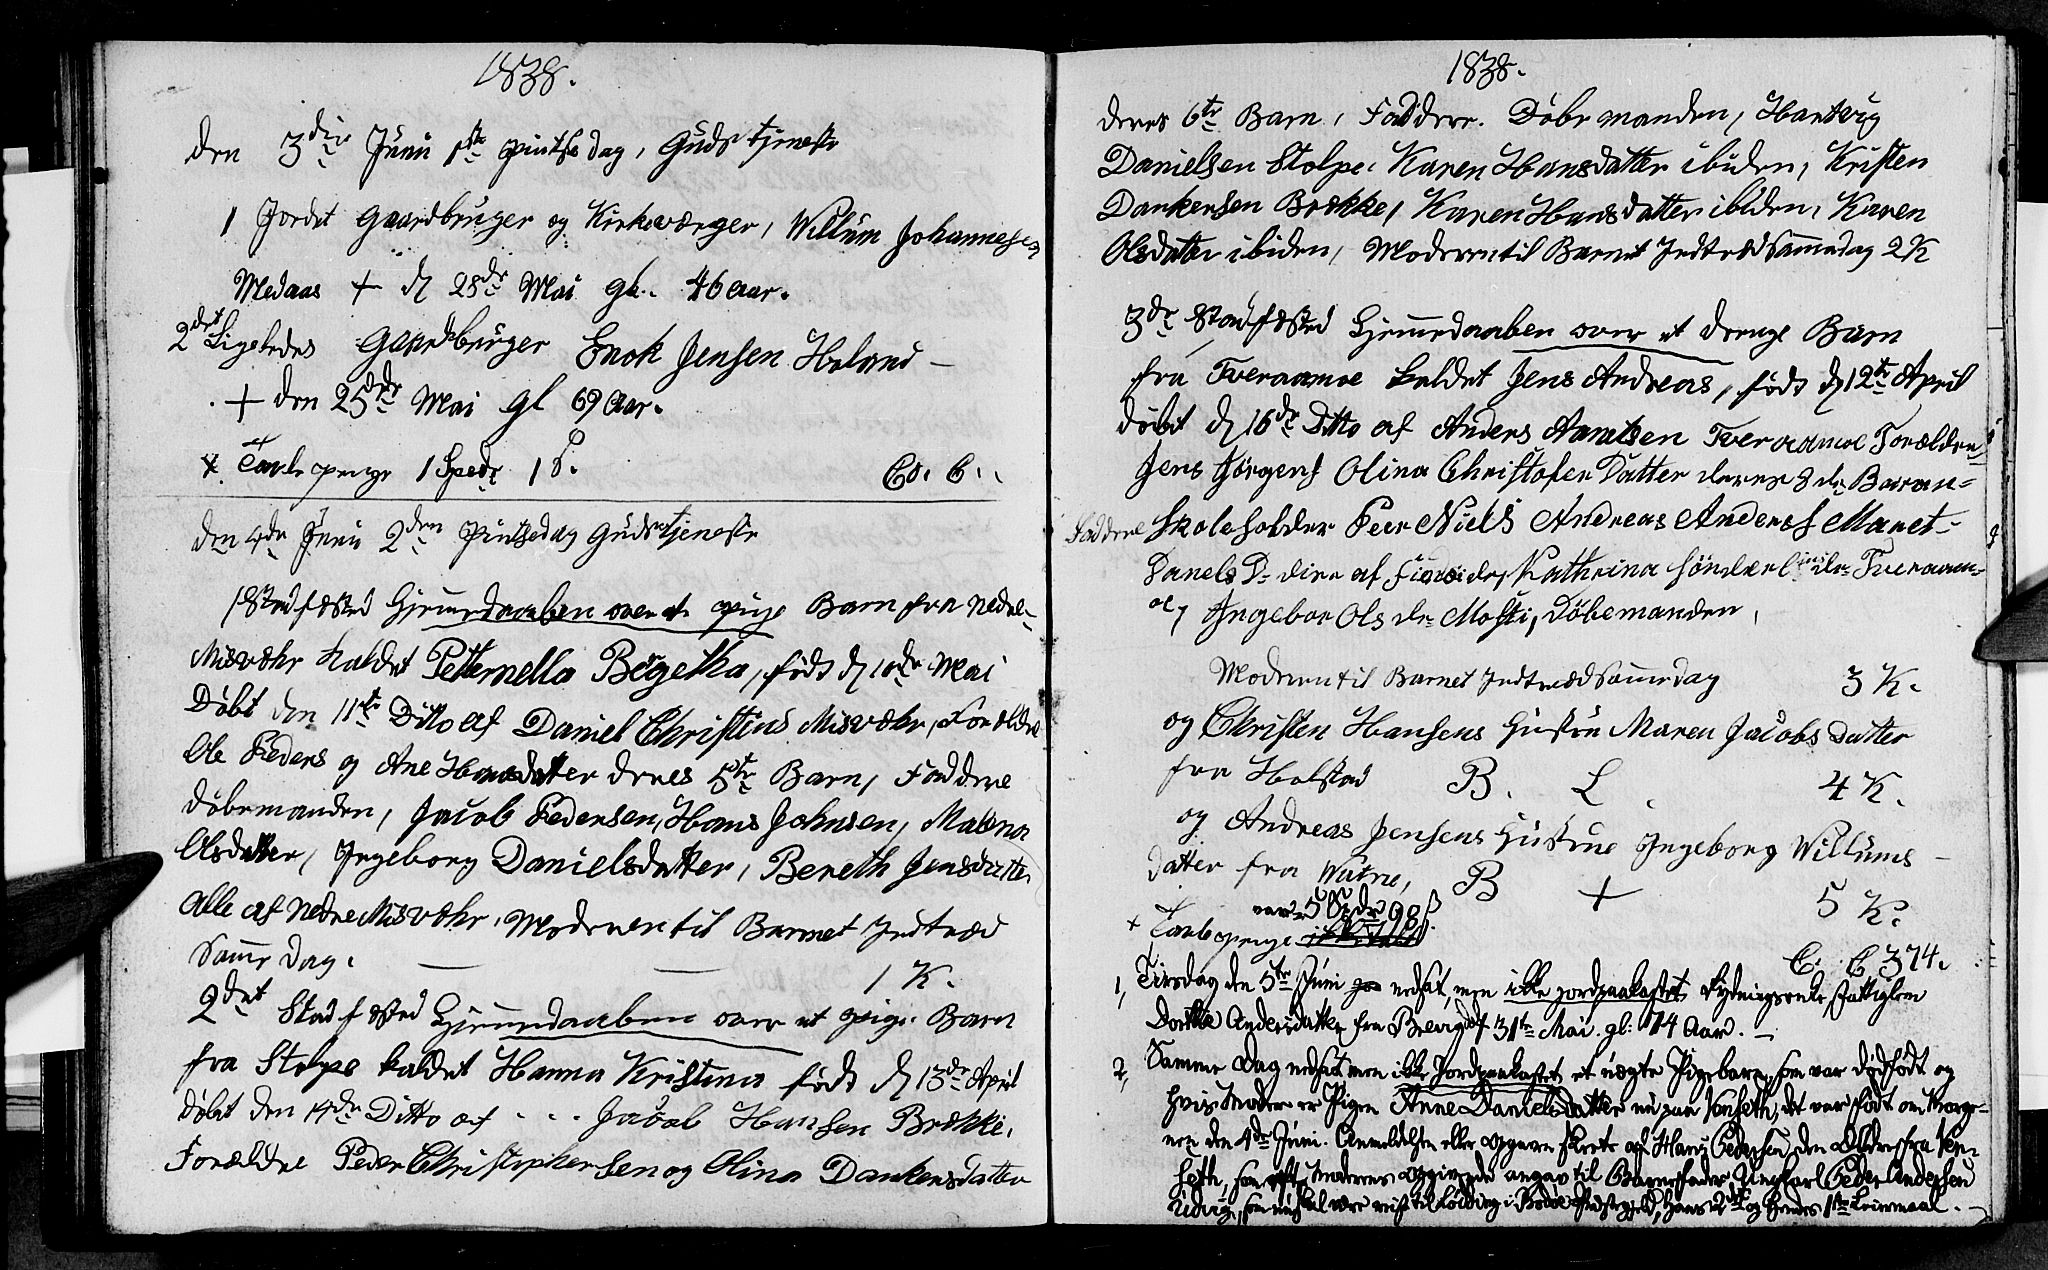 1838.
den 3die Juni 1ste pintsedag, Gudstjeneste
1 Jordet Gaardbruger og Kirkeværger, Willum Johannesen
Medaas + d 28de Mai gl. 46 aar.
2det Ligeledes Gaardbruger Enok Jensen Holand –
+ den 25de Mai gl 69 Aar.
+ Tavlepenge 1 Spedr 1 S. Co. 6.
den 4de Juni 2den Pintsedag Gudstjeneste
1 Stadfæsted Hjemedaaben over et pige Barn fra Nedre-
Misvæhr kaldet Petternella Begetha, født d 10de Mai
Døbt den 11te Ditto af Daniel Christens Misvæhr, Forældre
Ole Peders og Ane Hansdatter deres 5te Barn, Faddere
døbemanden, Jacob Pedersen, Hans Johnsen, Massna
Olsdatter, Ingeborg Danielsdatter, Bereth Jensdatter
alle af Nedre Misvæhr, Moderen til Barnet Indtræd
Samme Dag. — — 1 K.
2det Stadfæsted Hjemmedaaben over et pige Barn
fra Stolpe kaldet Hanna Kristina født d 13de April
døbt den 14de Ditto af Jacob Hansen Brække.
Forældre Peder Christophersen og Olina Dankersdatter
1838.
deres 6te Barn, Faddere. Døbemanden, Hartvig
Danielsen Stolpe, Karen Hansdatter ibiden, Kristen
Dankersen Brække, Karen Hansdatter ibiden, Karen
Olsdatter ibiden, Moderen til Barnet Indtræd Sammedag 2 K
3de Stadfæsted Hjemedaaben over et drenge Barn
fra Tveraamoe kaldet Jens Andreas, født d 12te April
døbt d 16de Ditto af Anders Arntsen Tveraamoe Forældre
Jens Jørgens Olina Christofer Datter deres 8de Baran-
Faddere Skoleholder Peer Niels Andreas Anders Maret-
Danels D. dire af Kathrina Tveraam-
oe, Ingebor Ols dr Mosti, Døbemanden,
Moderen til Barnet Indtræd Sammedag 3 K.
og Christen Hansens Hustru Maren Jacobs Datter
fra Holstad B. L. 4 K.
og Andreas Jensens Hustrue Ingeborg Willums –
datter fra B + 5 K.
var 5 Spdr 98 ß
+ Tavlepenge
C. C 374.
1, Tirsdag den 5te Juni nedsat, men ikke jordpaakastet Fattiglem
Dorthe Andersdatter fra Brevig + 31te Mai gl: 74 Aar. –
2, Samme Dag nedsat men ikke Jordpaakastet et uægte Pigebarn, som var dødfødt og
hvis Moder er Pigen Anne Danielsdatter nu paa Venseth, det var født om Morge-
nen den 4de Juni. Anmeldelsen eller af Hans Pedersen den ældre fra Ven-
seth, som efter Moderens opgivende angav til Barnefader Ungkarl Peder Andersen
som i Præstegjeld, hans 2det og hendes 1ste Leiermaal. –